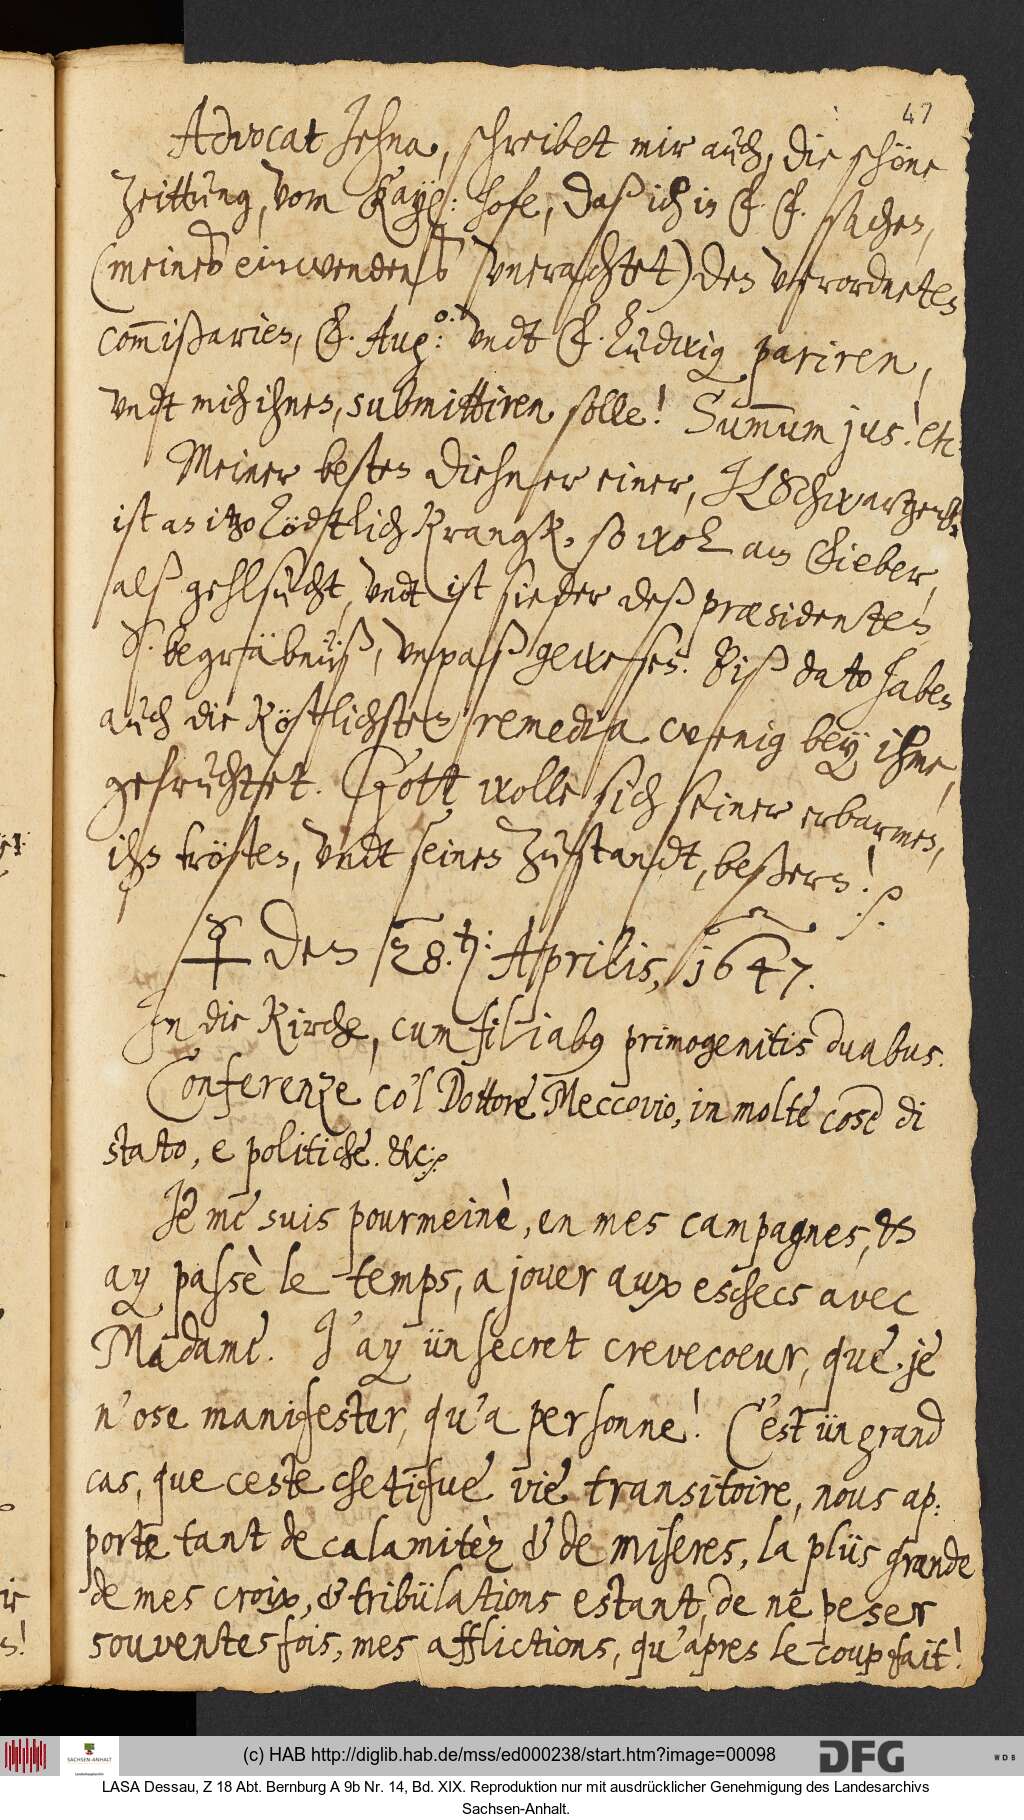 47
Advocat Jehna, schreibet mir auch, die schöne
Zeittung, vom Kayß: hofe, daß ich in F. F. sachen,
(meines einwendens vnerachtet) den verordneten
com̅ißarien, F. Aug.o: vndt F. Ludwig pariren,
vndt mich ihnen, submittiren solle! Sum̅um jus! etc.
Meiner besten Diehner einer, H Schwartzenb:
ist an itzo tödtlich Krangk, so wol am Fieber,
alß gehlsucht, vndt ist sieder deß præsidenten
S. begräbnüß, vnpaß gewesen. Biß dato haben
auch die Köstlichsten remedia wenig bey ihme,
gefruchtet. Gott wolle sich seiner erbarmen,
ihn trösten, vndt seinen Zustandt, beßern! /.
☿ den 28.ten: Aprilis, 1647.
In die Kirche, cum filiabus primogenitis duabus.
Conferenze co'l Dottore Meccovio, in molte cose di
stato, e politiche. &c:
Je me suis pourmeinè, en mes campagnes, &
ay passè le temps, a jouer aux eschecs avec
Madame. J'ay ün secret crevecoeur, que je
n'ose manifester, qu'a personne! C'est ün grand
cas, que ceste chetifve vie transitoire, nous ap:
porte tant de calamitèz & de miseres, la plüs grande
de mes croix, & tribülations estant, de ne peser
souventesfois, mes afflictions, qu'apres le coup fait!
(c) HAB http://diglib.hab.de/mss/ed000238/start.htm?image=00098
SACHSEN-ANHALT
DFG
WDB
LASA Dessau, Z 18 Abt. Bernburg A 9b Nr. 14, Bd. XIX. Reproduktion nur mit ausdrücklicher Genehmigung des Landesarchivs
Sachsen-Anhalt.